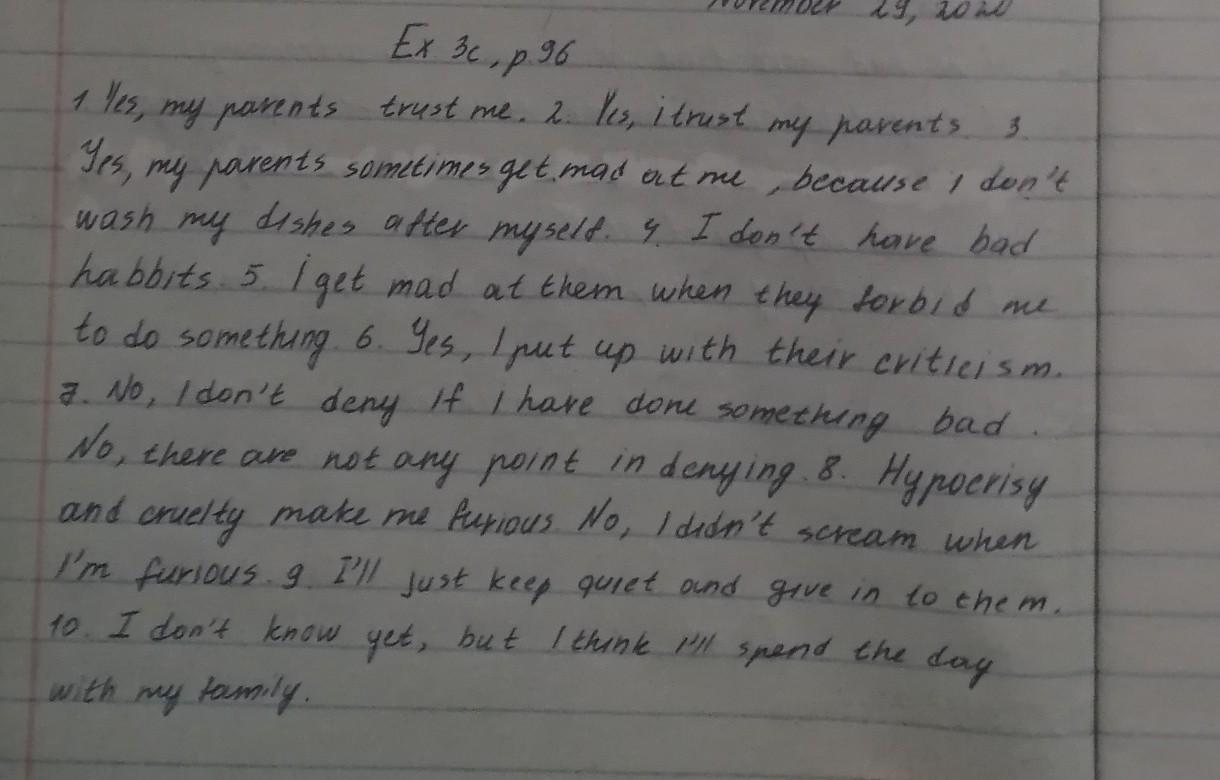 November 29, 2020
Ex 3c, p.96
1. Yes, my parents trust me. 2. Yes, i trust my parents. 3.
Yes, my parents sometimes get mad at me, because I don't
wash my dishes after myself. 4. I don't have bad
habbits. 5. I get mad at them when they forbid me
to do something. 6. Yes, I put up with their criticism.
7. No, I don't deny if I have done something bad.
No, there are not any point in denying. 8. Hypocrisy
and cruelty make me furious. No, I didn't scream when
I'm furious. 9. I'll just keep quiet and give in to them.
10. I don't know yet, but I think I'll spend the day
with my family.